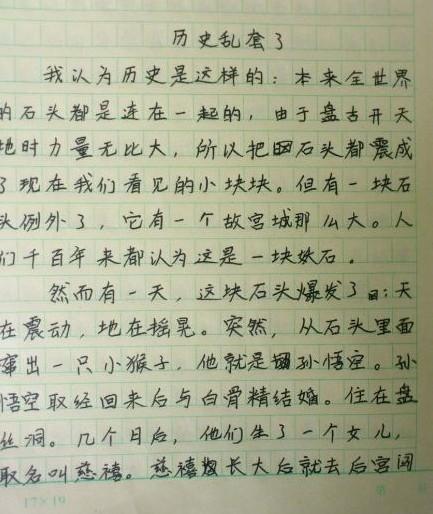 历史乱套了
我认为历史是这样的：本来全世界
的石头都是连在一起的，由于盘古开天
地时力量无比大，所以把石头都震成
了现在我们看见的小块块。但有一块石
头例外了，它有一个故宫城那么大。人
们千百年来都认为这是一块妖石。
然而有一天，这块石头爆发了：天
在震动，地在摇晃。突然，从石头里面
蹿出一只小猴子，他就是孙悟空。孙
悟空取经回来后与白骨精结婚。住在盘
丝洞。几个月后，他们生了一个女儿，
取名叫慈禧。慈禧长大后就去后宫闯
17×19
第